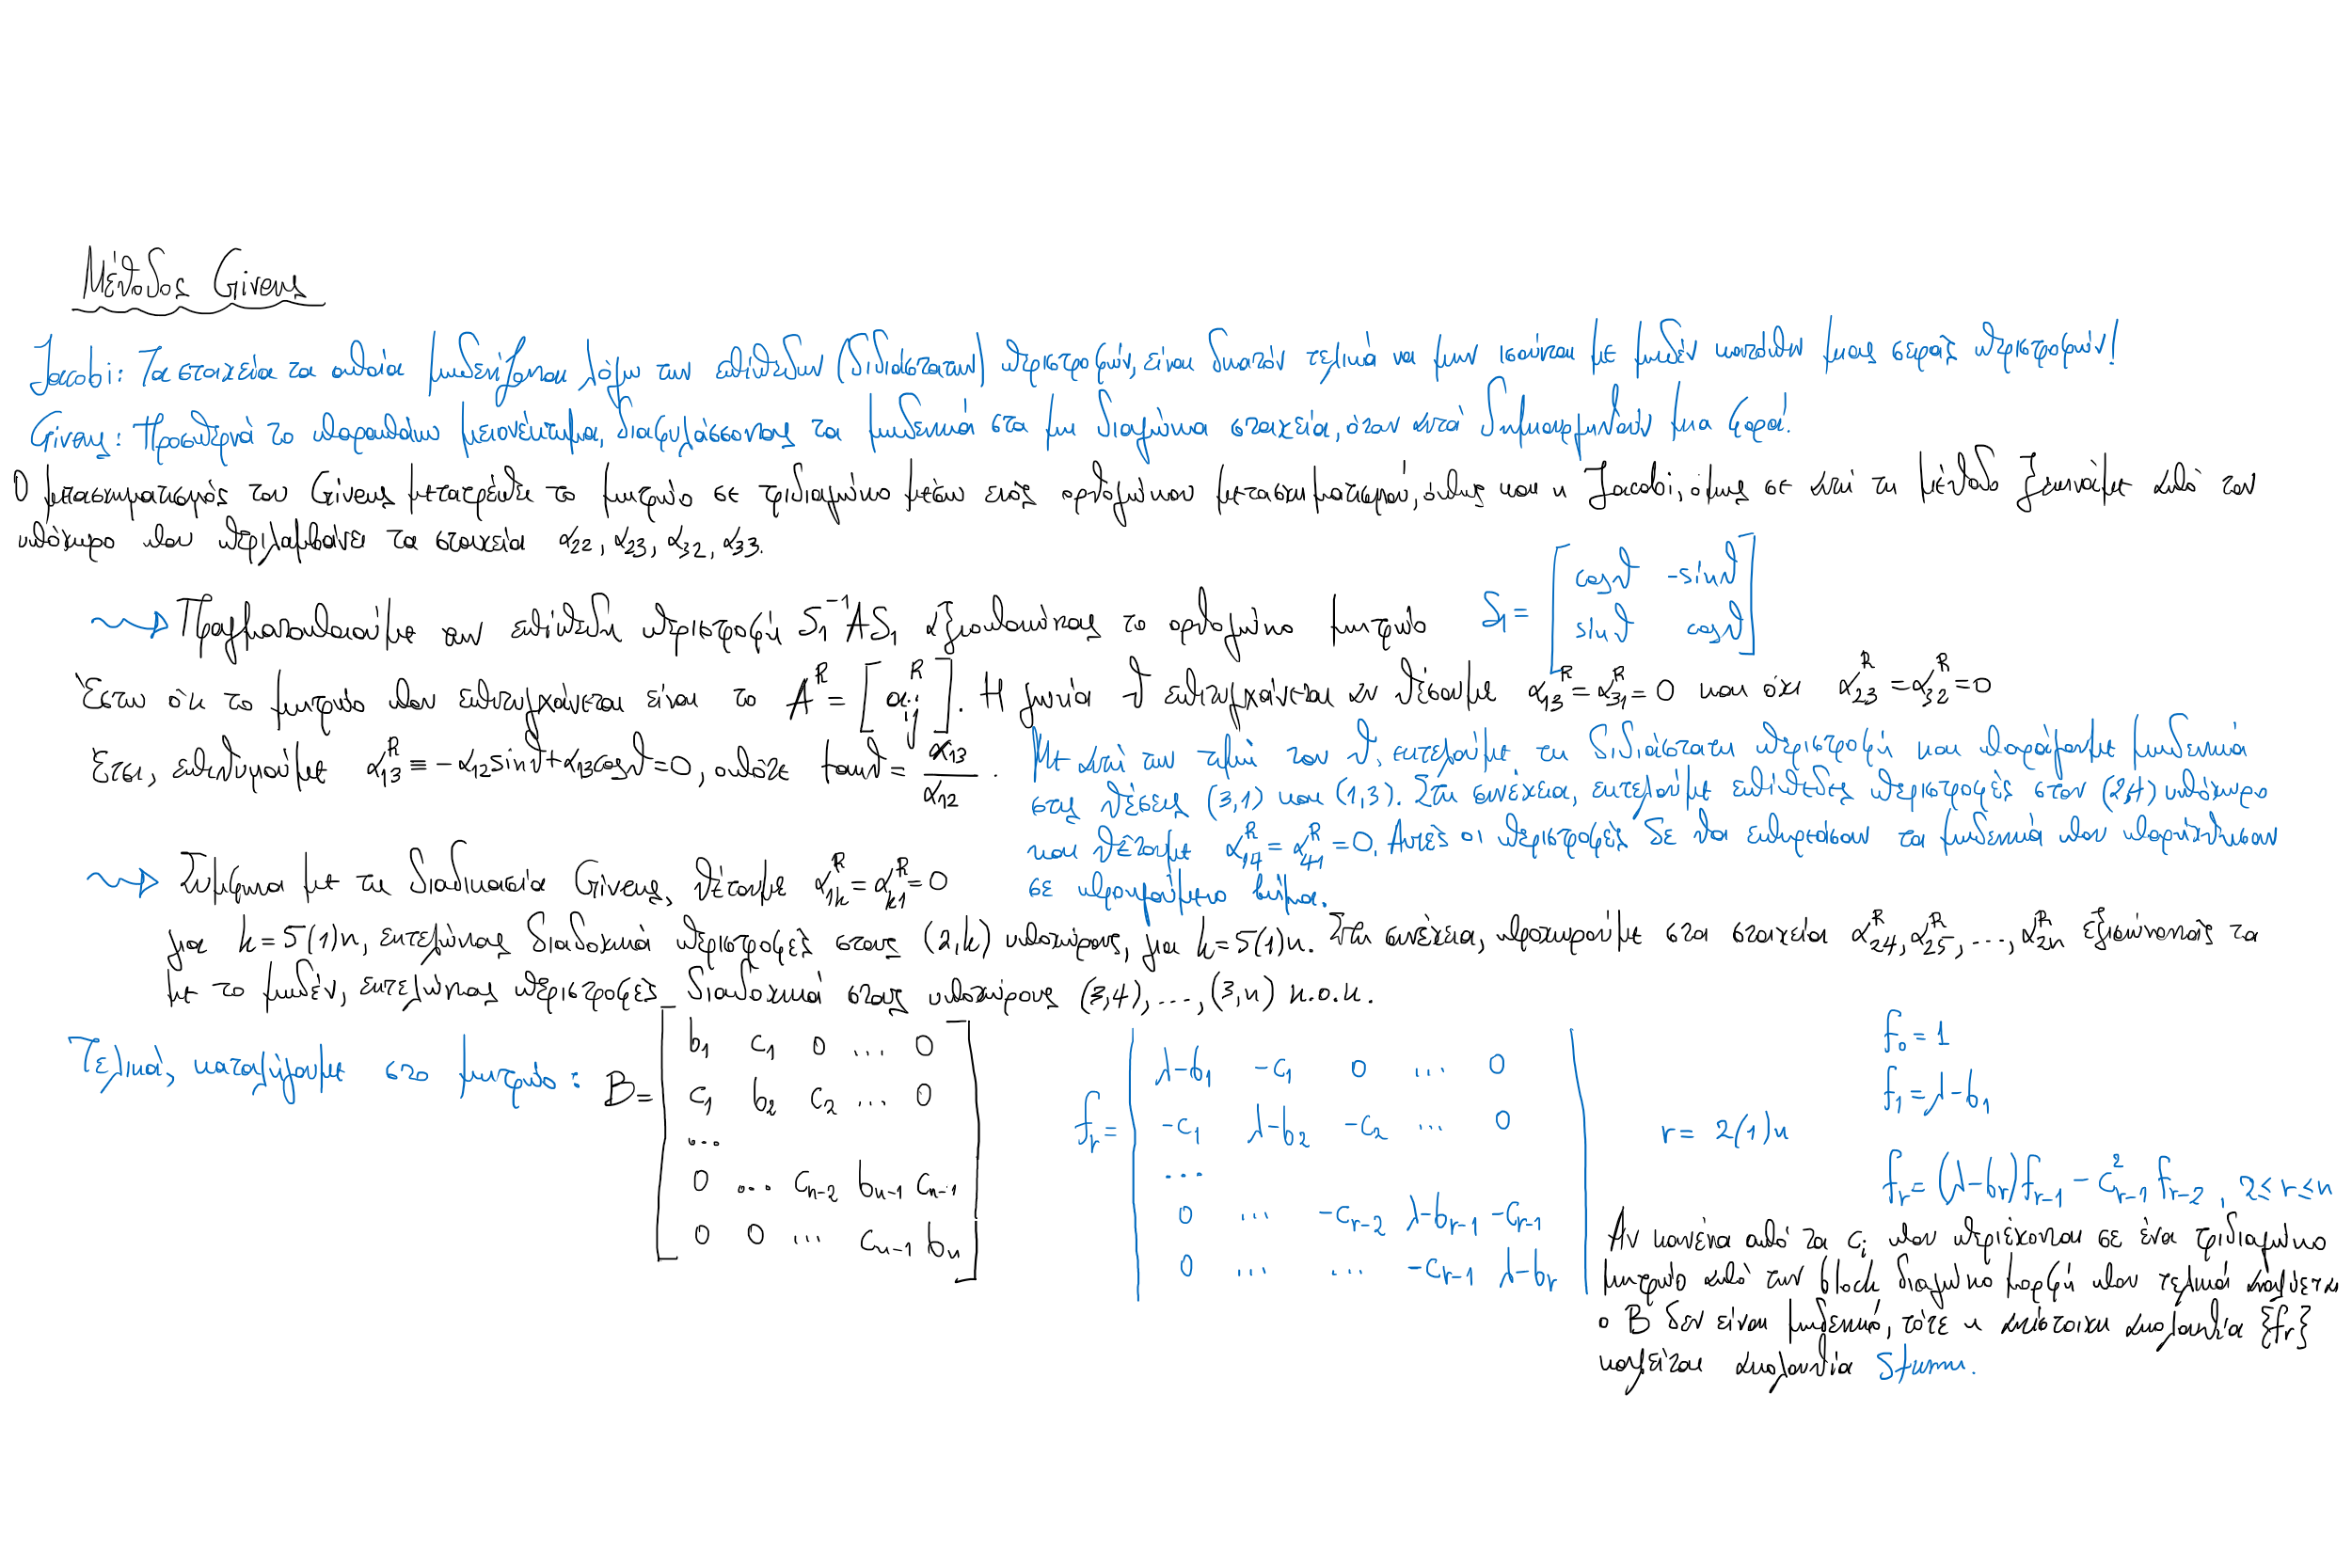 Μέθοδος Givens
Jacobi: Τα στοιχεία τα οποία μηδενίζονται λόγω των επίπεδων (διδιάστατων) περιστροφών, είναι δυνατόν τελικά να μην ισούνται με μηδέν κατόπιν μιας σειράς περιστροφών!
Givens: Προσπερνά το παραπάνω μειονέκτημα, διαφυλάσσοντας τα μηδενικά στα μη διαγώνια στοιχεία, όταν αυτά δημιουργηθούν μια φορά!
Ο μετασχηματισμός του Givens μετατρέπει το μητρώο σε τριδιαγώνιο μέσω ενός ορθογώνιου μετασχηματισμού, όπως και η Jacobi, όμως σε αυτή τη μέθοδο ξεκινάμε από τον
υπόχωρο που περιλαμβάνει τα στοιχεία α22, α23, α32, α33.
Πραγματοποιούμε την επίπεδη περιστροφή S₁⁻¹AS₁ αξιοποιώντας το ορθογώνιο μητρώο S₁ = [cosϑ -sinϑ; sinϑ cosϑ]
Έστω ότι το μητρώο που επιτυγχάνεται είναι το A^R = [α_ij^R]. Η γωνία ϑ επιτυγχάνεται αν θέσουμε α₁₃^R = α₃₁^R = 0 και όχι α₂₃^R = α₃₂^R = 0
Έτσι, επιθυμούμε α₁₃^R ≡ -α₁₂sinϑ+α₁₃cosϑ=0, οπότε tanϑ = α₁₃/α₁₂.
Με αυτή την τιμή του ϑ, εκτελούμε τη διδιάστατη περιστροφή και παράγουμε μηδενικά
στις θέσεις (3,1) και (1,3). Στη συνέχεια, εκτελούμε επίπεδες περιστροφές στον (2,4) υπόχωρο
και θέτουμε α₁₄^R = α₄₁^R = 0. Αυτές οι περιστροφές δε θα επηρεάσουν τα μηδενικά που παρήχθησαν
σε προηγούμενο βήμα.
Σύμφωνα με τη διαδικασία Givens, θέτουμε α₁k^R = α_k1^R = 0
για k=5(1)n, εκτελώντας διαδοχικά περιστροφές στους (2,k) υποχώρους, για k=5(1)n. Στη συνέχεια, προχωρούμε στα στοιχεία α₂₄^R, α₂₅^R, ..., α₂n^R εξισώνοντάς τα
με το μηδέν, εκτελώντας περιστροφές διαδοχικά στους υποχώρους (3,4), ..., (3,n) κ.ο.κ.
Τελικά, καταλήγουμε στο μητρώο: B=
b₁ c₁ 0 ... 0
c₁ b₂ c₂ ... 0
...
0 ... c_n-2 b_n-1 c_n-1
0 0 ... c_n-1 b_n
f_r =
λ-b₁ -c₁ 0 ... 0
-c₁ λ-b₂ -c₂ ... 0
...
0 ... -c_r-2 λ-b_r-1 -c_r-1
0 ... ... -c_r-1 λ-b_r
r = 2(1)n
f₀ = 1
f₁ = λ-b₁
f_r = (λ-b_r)f_r-1 - c²_r-1 f_r-2, 2≤r≤n
Αν κανένα από τα c_i που περιέχονται σε ένα τριδιαγώνιο
μητρώο από την block διαγώνιο μορφή που τελικά αναλύεται
ο B δεν είναι μηδενικό, τότε η αντίστοιχη ακολουθία {f_r}
καλείται ακολουθία Sturm.